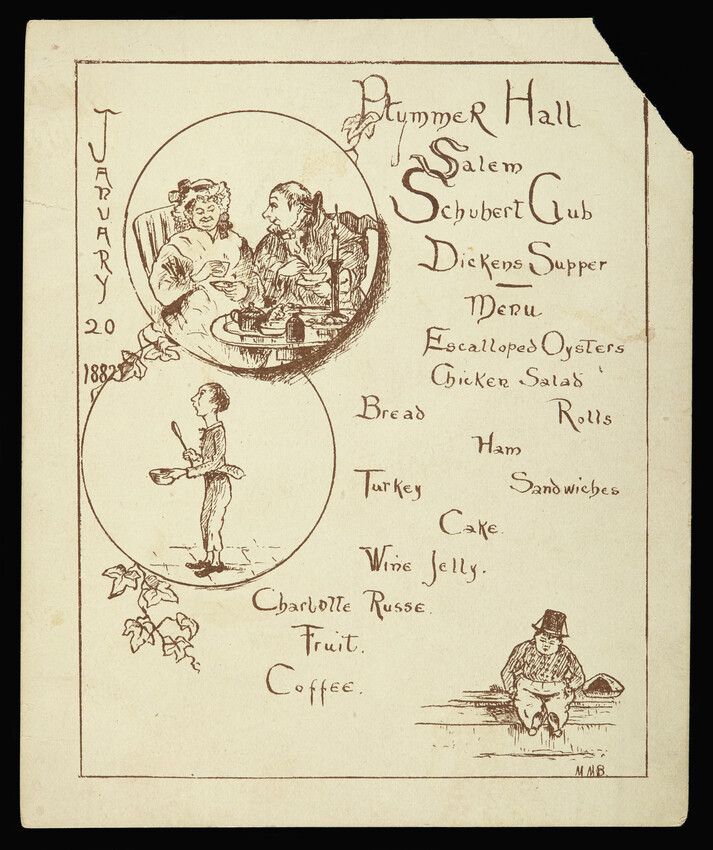 JANUARY
20
1882
Plymmer Hall
Salem
Schubert Club
Dickens Supper
Menu
Escalloped Oysters
Chicken Salad
Bread Rolls
Ham
Turkey Sandwiches
Cake.
Wine Jelly.
Charlotte Russe.
Fruit.
Coffee.
M.M.B.